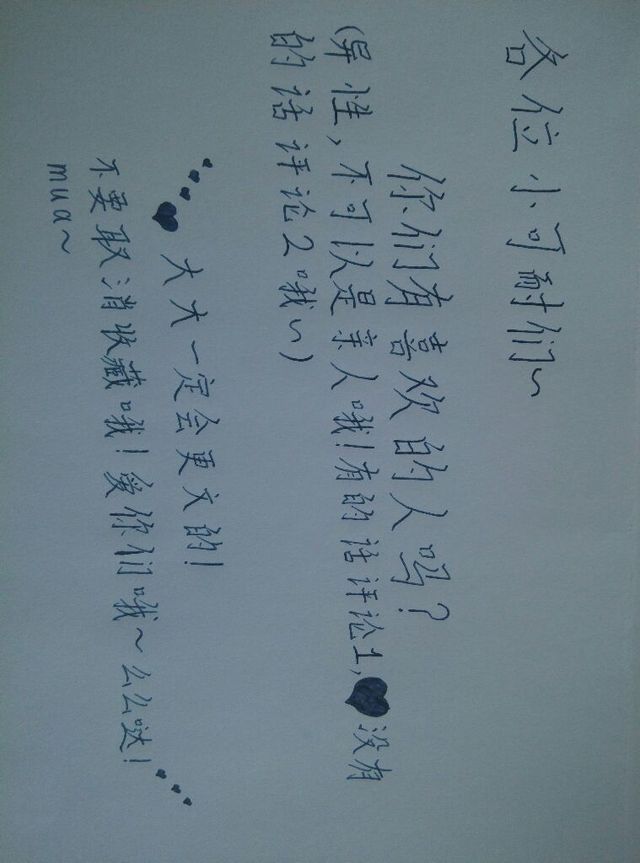 各位小可耐们~
你们有喜欢的人吗?
(异性,不可以是亲人哦!有的话评论1,♥没有
的话评论2哦~)
大大一定会更文的!
不要取消收藏哦!爱你们哦~么么哒!
mua~